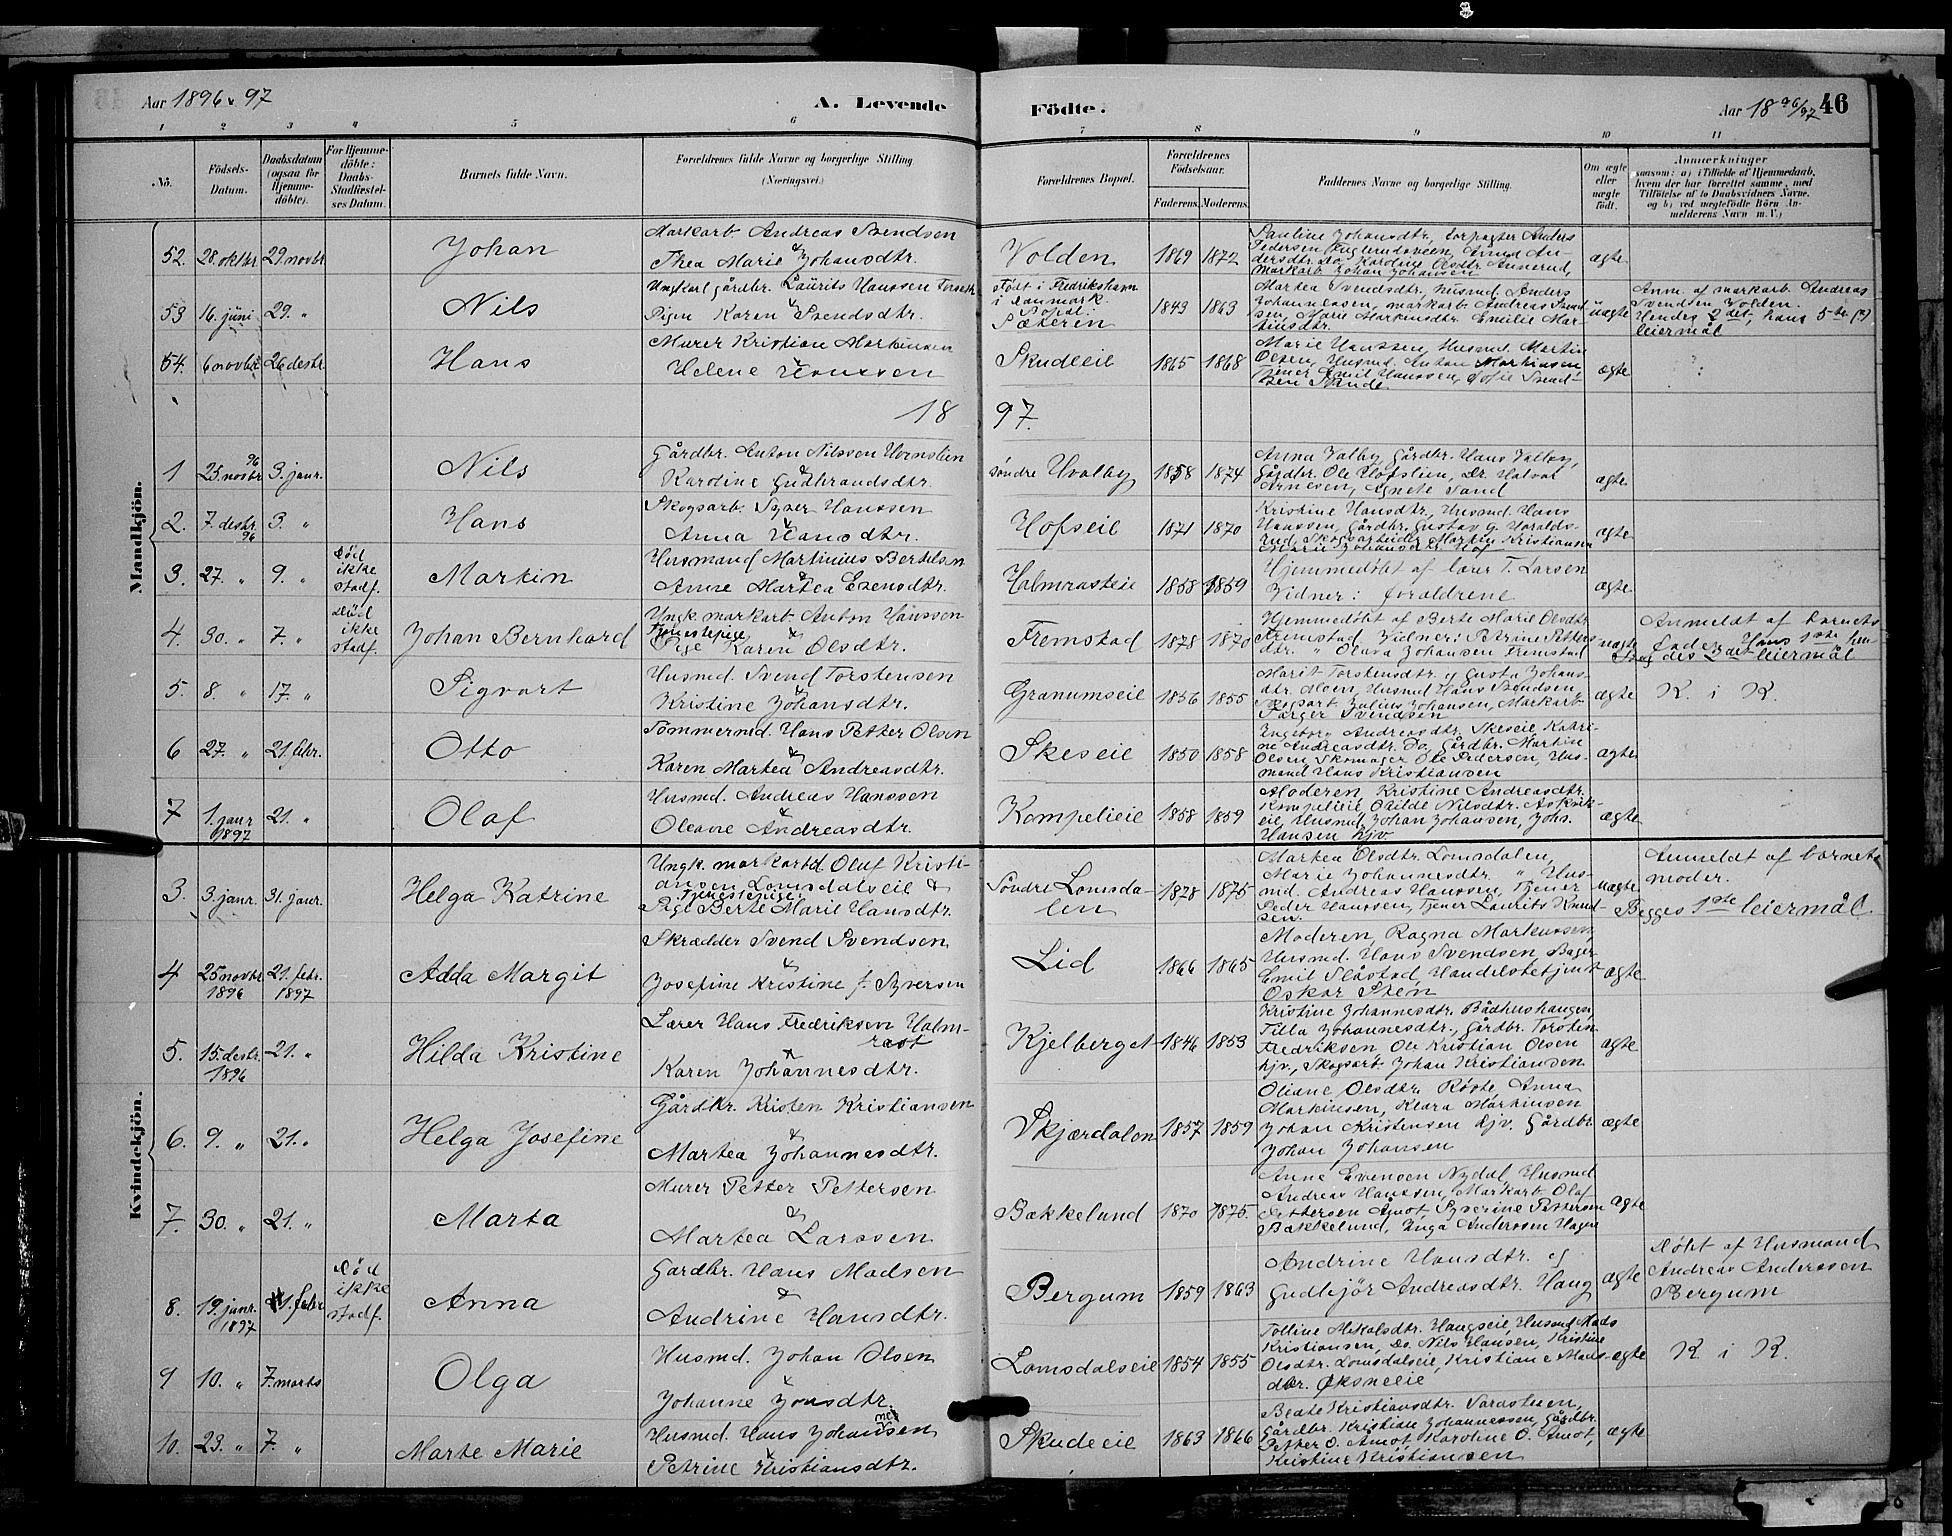 Aar 1896 & 97
A. Levende
Födte.
Aar 18 96/97 46
1 2 3 4 5 6 7 8 9 10 11
No.
Födsels-Datum.
Daabsdatum (ogsaa for Hjemme-döbte).
For Hjemme-döbte: Daabs-Stadfæstel-ses Datum.
Barnets fulde Navn.
Forældrenes fulde Navne og borgerlige Stilling (Næringsvei.)
Forældrenes Bopæl.
Forældrenes Födselsaar.
Faderens. Moderens.
Faddernes Navne og borgerlige Stilling.
Om ægte eller uægte födt.
Anmærkninger
saasom: a) i Tilfælde af Hjemmedaab, hvem der har forrettet samme, med Tilföielse af to Daabsvidners Navne, og b) ved uægtefödte Börn An-melderens Navn m.V.)
Mandkjön.
52. 28. oktbr 29. novbr Johan
Markarb Andreas Svendsen
& Thea Marie Johansdtr.
Volden 1869 1872
Pauline Johansdtr, torpagter Anders
Pedersen
dersdtr. Do, Karoline Olsdtr. Annerud,
Markarb Johan Johansen
ægte
53 16. juni 29. " Nils
Ungkarl gårdbr. Laurits Hanssen
& Pigen Karen Svendsdtr.
Født i Fredrikshavn
i Danmark.
Bopæl:
Sæteren
1843 1863
Martea Svendsdtr, husmd. Anders
Johannessen, markarb. Andreas Svend-
sen, Marie Martinsdtr. Emilie Mar-
tinsdtr.
uægte
Anm. af markarb. Andreas
Svendsen Volden.
Hendes 2det, hans 5te (?)
leiermål
54. 6 novbr 26 desbr. Hans
Murer Kristian Martinsen
& Helene Hanssen
Skudeeie 1865 1868
Marie Hanssen, Husmd. Martin
Olsen, Husmd. Anton Martinsen
Tjener Emil Hanssen, Sofie Svend-
sen Skude
ægte
18 97.
1 25. novbr 96 3. janr. Nils
Gårdbr. Anton Nilssen Hornslien
& Karoline Gudbrandsdtr.
søndre Hvalby 1858 1874
Anna Valby, Gårdbr. Hans Valby,
Gårdbr. Ole Hofslien, Do. Halvol
Arnesen, Agnete Sand
ægte
2. 7. desbr. 96 3. " Hans
Skogsarb. Syver Hanssen
& Anna Hansdtr.
Hofseie 1871 1870
Kristine Hansdtr, Husmd. Hans
Hanssen, Gårdbr. Gustav G. Haralds-
rud, Skogsarbeider Martin Kristiansen
Marie Johansdtr. Hof
ægte
3. 27. " 9. " Død ikke stadf. Martin
Husmand Martinius Bertelsen
& Anne Martea Evensdtr.
Halmrasteie 1858 1859
Hjemmedøbt af lærer T. Larsen
Vidner: forældrene
ægte
4. 30. " 7. " Død ikke stadf. Johan Bernhard
Ungk. markarb. Anton Hanssen
& Tjenestepige
Pige Karen Olsdtr.
Fremstad 1878 1870
Hjemmedøbt af Berte Marie Olsdtr.
Fremstad Vidner: Petrine Petters-
dtr. " Olava Johansen Fremstad
uægte
Anmeldt af barnets
fader. Hans 1ste hen-
des 2det leiermål
5. 8. " 17. " Sigvart
Husmd. Svend Torstensen
& Kristine Johansdtr.
Granumseie 1856 1855
Marit Torstensdtr. og Gusta Johans-
dtr. Moen, Husmd Hans Svendsen,
Skogsarb Julius Johansen, Markarb
Torger Svendsen
ægte
K. i K.
6 27. " 21. febr. Otto
Tømmermd. Hans Petter Olsen
& Karen Martea Andreasdtr.
Skeseie 1850 1858
Ingeborg Andreasdtr. Skeseie Kathri-
ne Andreasdtr. Do, Gårdbr. Martin
Olsen, Skomager Ole Pedersen, Hus-
mand Hans Kristiansen
ægte
7 1. janr 1897 21. " Olaf
Husmd. Andreas Hanssen
& Oleane Andreasdtr.
Kompelieie 1858 1859
Moderen Kristine Andreasdtr.
Kompelieie Otilde Nilsdtr. Askvik-
eie, Husmd. Johan Johansen, Johs.
Hansen Hjv.
ægte
Kvindekjön.
3. 3. janr. 31. janr. Helga Katrine
Ungk. markarbd Oluf Kristi-
ansen Lomsdalseie &
Tjenestepige.
Pige Berte Marie Hansdtr.
Søndre Lomsda-
len
1878 1875
Martea Olsdtr. Lomsdalen,
Marie Johannesdtr. " Hus-
md. Andreas Hanssen, Tjener
Peder Hanssen, Tjener Laurits Knud-
sen.
uægte
Anmeldt af barnets
moder.
Begges 1ste leiermål.
4 25 novbr 1896 21. febr. 1897 Adda Margit
Skrædder Svend Svendsen
& Josefine Kristine f. Syversen
Lid 1866 1865
Moderen, Ragna Markussen,
Husmd. Hans Svendsen, Bager
Emil Slåstad, Handelsbetjent
Oskar Steen
ægte
5. 15. desbr. 1896 21. " Hilda Kristine
Lærer Hans Fredriksen Halm-
rast
& Karen Johannesdtr.
Kjelberget 1846 1853
Kristine Johannesdtr. Bådhushaugen,
Tilla Johannesdtr., Gårdbr. Torsten
Fredriksen Ole Kristian Olsen
hjv., Skogsarb. Johan Kristiansen
ægte
6. 9. " 21. " Helga Josefine
Gårdbr. Kristen Kristiansen
& Martea Johannesdtr.
Skjærdalen 1857 1859
Oliane Olsdtr. Røste Anna
Martinsen, Klara Martinsen
Johan Kristensen hjv. Gårdbr.
Johan Johansen
ægte
7. 30. " 21. " Marta
Murer Petter Pettersen
& Martea Larssen
Bakkelund 1870 1875.
Anne Evensen Nydal, Husmd
Andreas Hanssen, Markarb. Olaf
Pettersen Åmot Syverine Pettersen
Bakkelund, Inga Anderssen Hagen
ægte
8. 19. janr. 1897 febr Død ikke stadf. Anna
Gårdbr. Hans Madsen
& Andrine Hansdtr.
Bergum 1859 1863
Andrine Hansdtr. og
Gudbjør Andreasdtr. Haug
ægte
Døbt af Husmand
Andreas Anderssen
Bergum
9 10. " 7. marts Olga
Husmd. Johan Olsen
& Johanne Jonsdtr.
Lomsdalseie 1854 1855
Tolline Mikalsdtr. Haugseie, Husmd Mads
Kristiansen, Do. Nils Hansen, Kristine
Olsdtr. Lomsdalseie, Kristiane Mads-
dtr. Øksneeie
ægte
K. i K.
10. 23. " 7. " Marte Marie
Husmd. Hans Johansen
& Petrine Kristiansdtr.
Skudeeie 1863 1866
Beate Kristiansdtr.
Gårdbr. Kristian Johannessen, Gårdbr.
Petter O. Åmot, Karoline O. Åmot,
Kristine Kristiansen
ægte